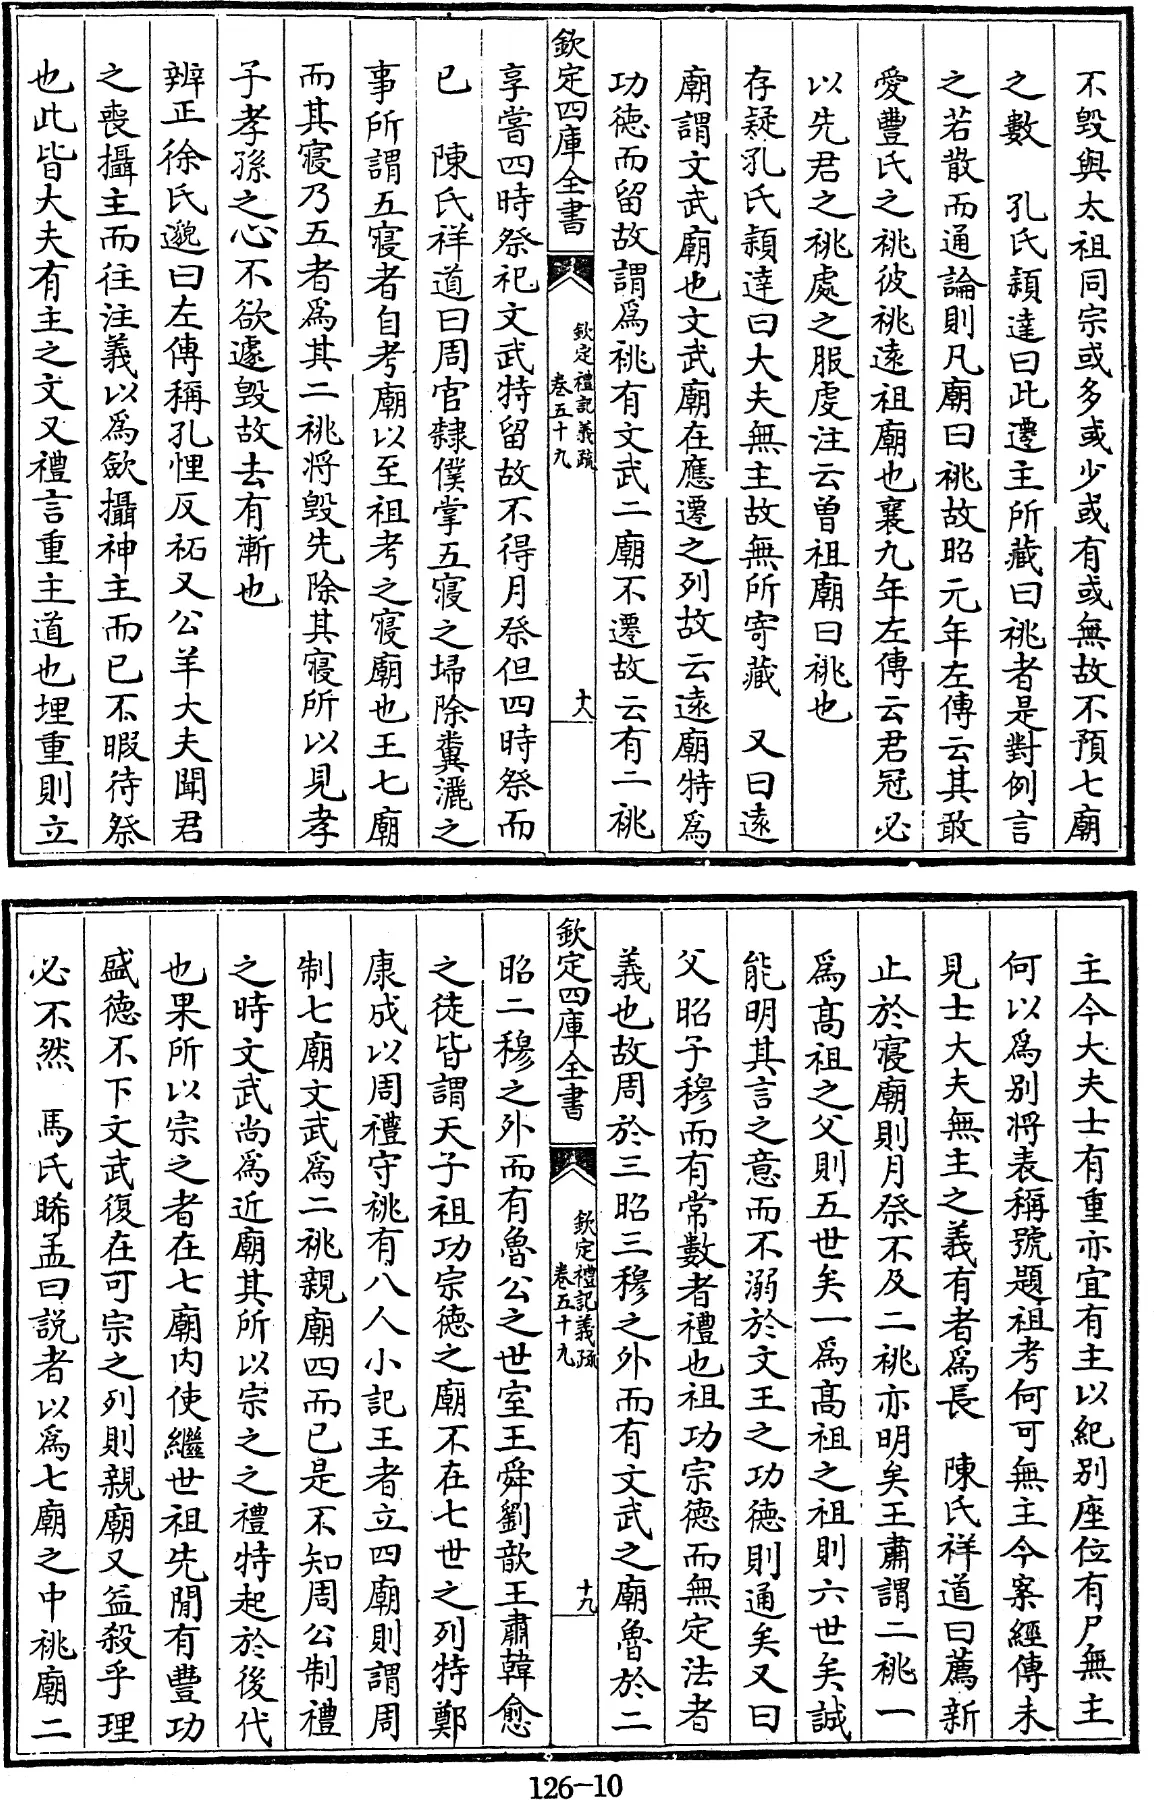 不毁與太祖同宗或多或少或有或無故不預七廟
之數　孔氏穎達曰此遷主所藏曰祧者是對例言
之若散而通論則凡廟曰祧故昭元年左傳云其敢
愛豐氏之祧彼祧遠祖廟也襄九年左傳云君冠必
以先君之祧處之服虔注云曾祖廟曰祧也
存疑孔氏穎達曰大夫無主故無所寄藏　又曰遠
廟謂文武廟也文武廟在應遷之列故云遠廟特為
功徳而留故謂為祧有文武二廟不遷故云有二祧
欽定四庫全書
欽定禮記義疏
卷五十九
十八
享嘗四時祭祀文武特留故不得月祭但四時祭而
已　陳氏祥道曰周官隸僕掌五寑之埽除糞灑之
事所謂五寑者自考廟以至祖考之寑廟也王七廟
而其寑乃五者為其二祧将毁先除其寑所以見孝
子孝孫之心不欲遽毁故去有漸也
辨正徐氏邈曰左傳稱孔悝反祏又公羊大夫聞君
之喪攝主而往注義以為斂攝神主而已不暇待祭
也此皆大夫有主之文又禮言重主道也埋重則立
主今大夫士有重亦宜有主以紀别座位有尸無主
何以為别将表稱號題祖考何可無主今案經傳未
見士大夫無主之義有者為長　陳氏祥道曰薦新
止於寑廟則月祭不及二祧亦明矣王肅謂二祧一
為髙祖之父則五世矣一為髙祖之祖則六世矣誠
能明其言之意而不溺於文王之功徳則通矣又曰
父昭子穆而有常數者禮也祖功宗徳而無定法者
義也故周於三昭三穆之外而有文武之廟魯於二
欽定四庫全書
欽定禮記義疏
卷五十九
十九
昭二穆之外而有魯公之世室王舜劉歆王肅韓愈
之徒皆謂天子祖功宗徳之廟不在七世之列特鄭
康成以周禮守祧有八人小記王者立四廟則謂周
制七廟文武為二祧親廟四而已是不知周公制禮
之時文武尚為近廟其所以宗之之禮特起於後代
也果所以宗之者在七廟内使繼世祖先閒有豐功
盛徳不下文武復在可宗之列則親廟又益殺乎理
必不然　馬氏睎孟曰説者以為七廟之中祧廟二
126-10